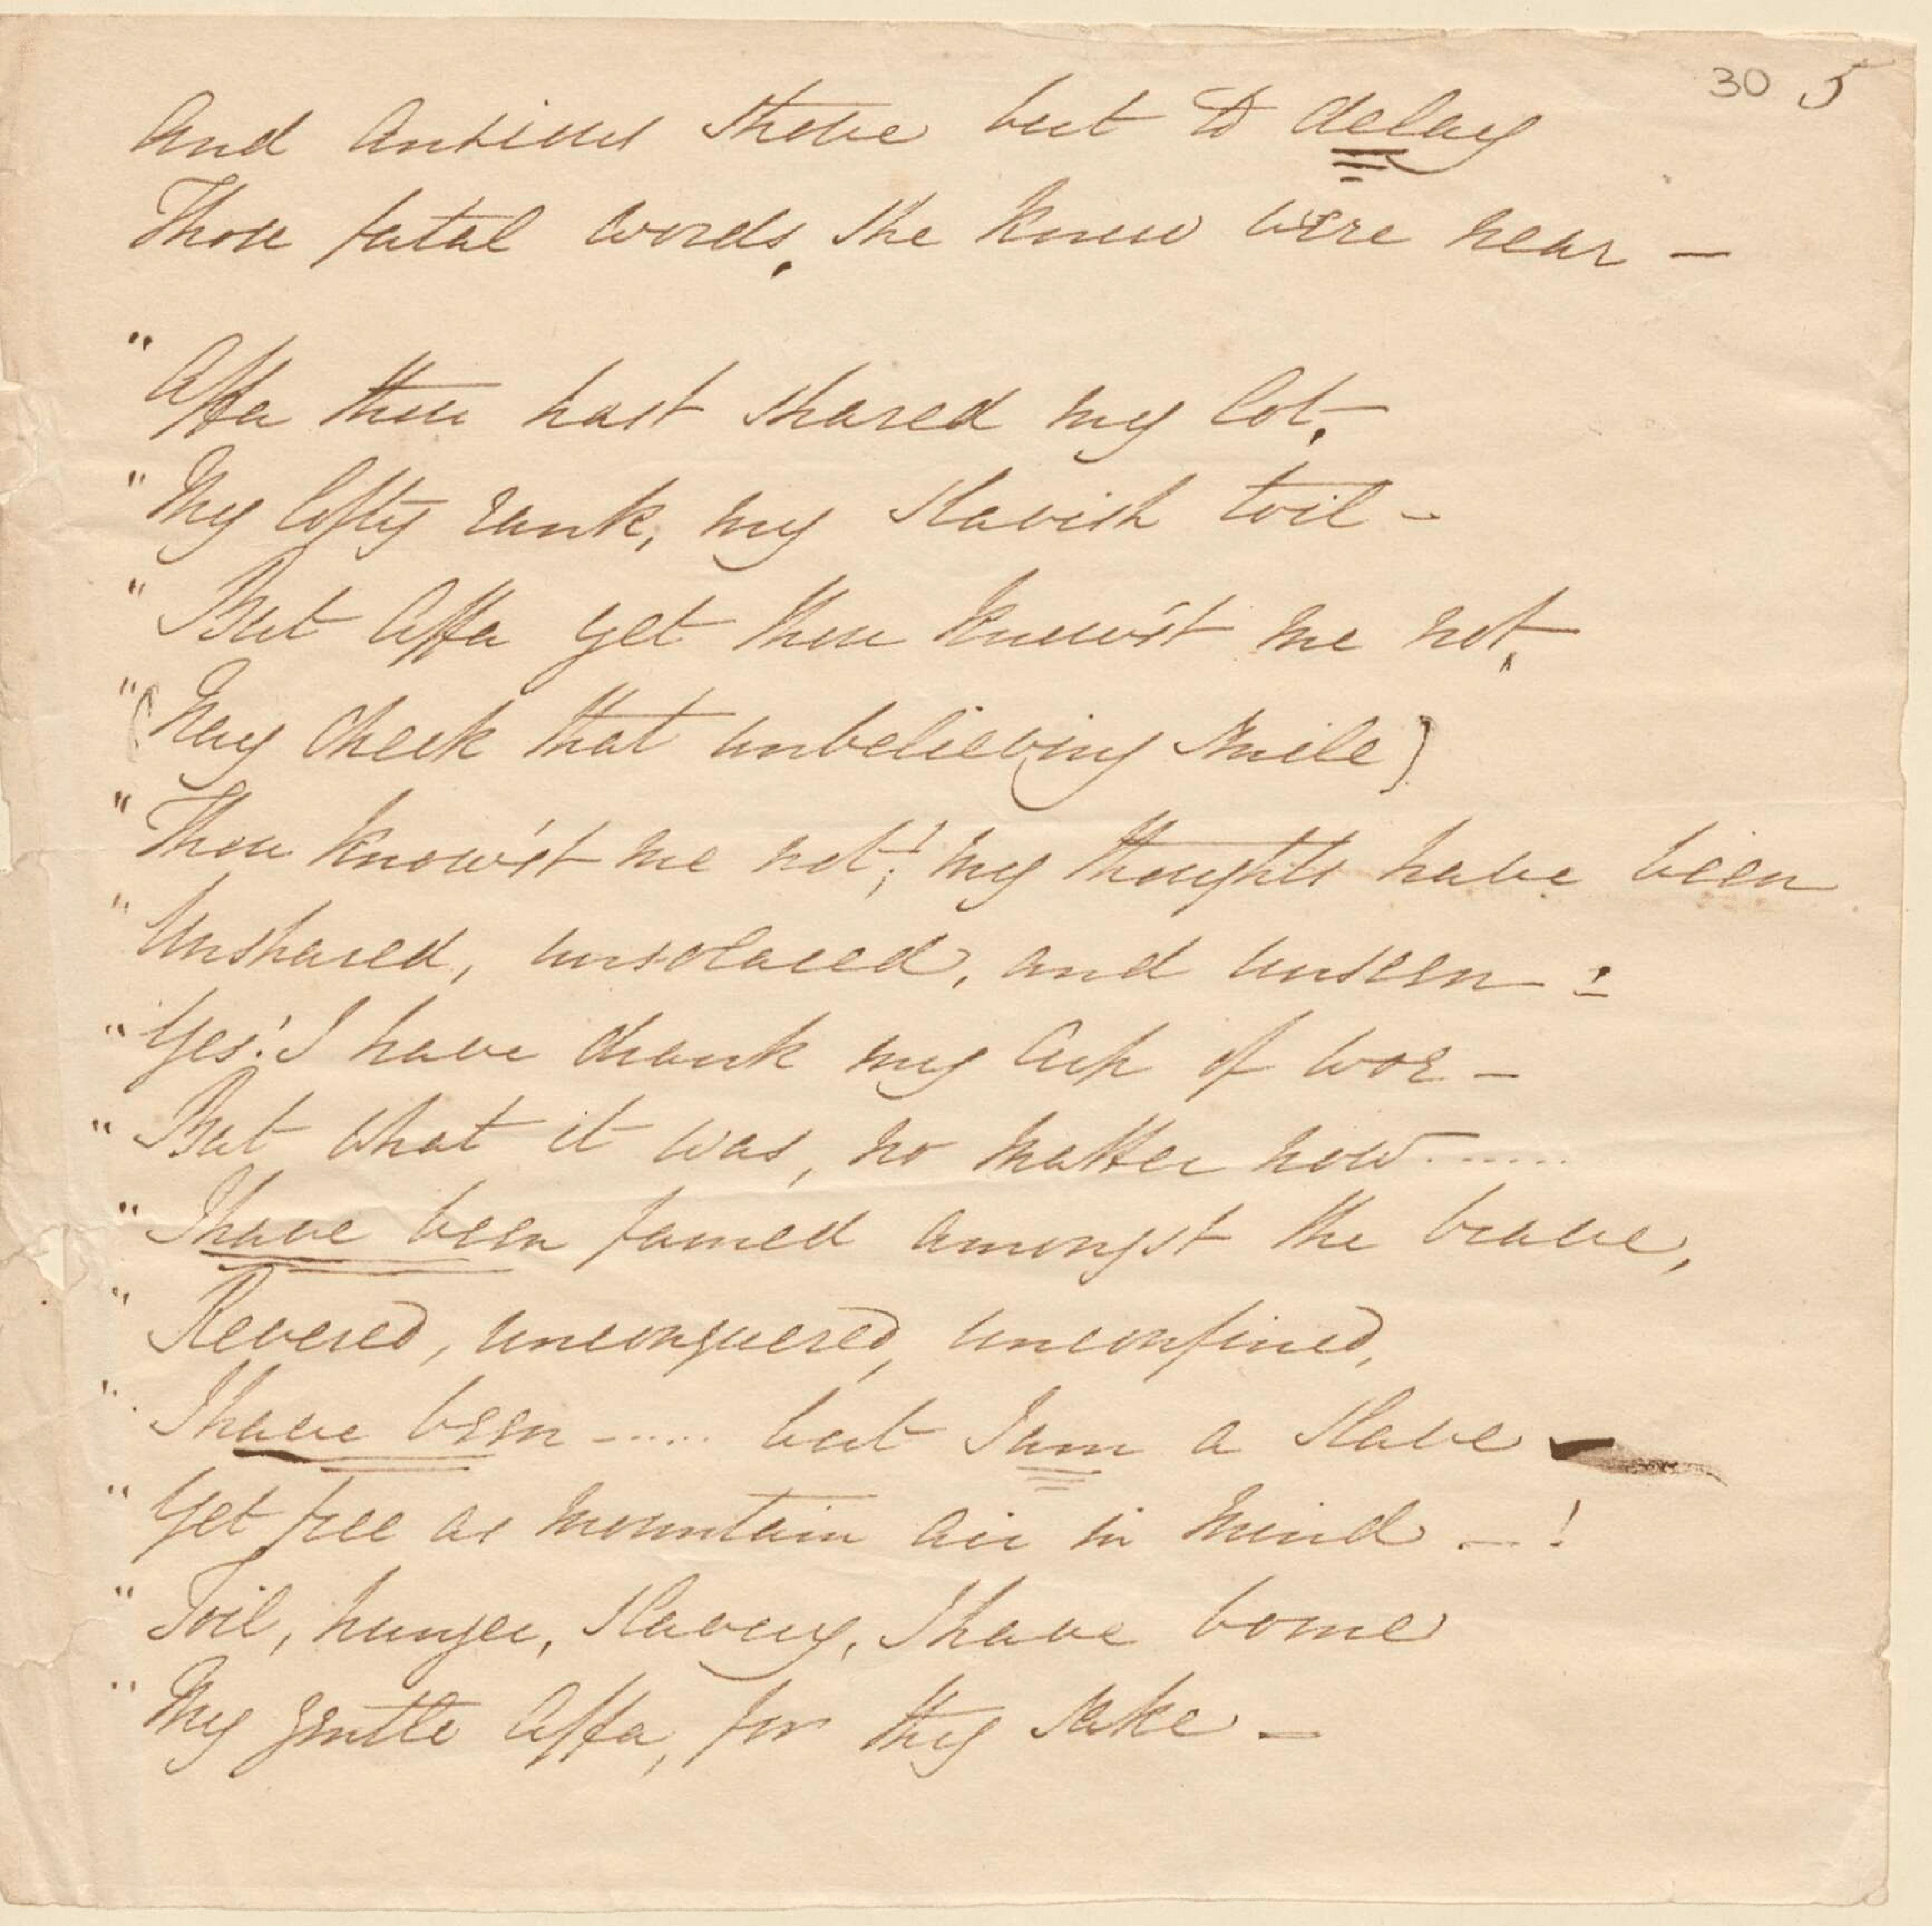 30 5
And anxious strove but to delay
Those fatal words, she knew were near —
"Affa thou hast shared my lot,
"My lofty rank, my slavish toil -
"But Affa yet thou know'st me not,
"(Nay check that unbelieving smile)
"Thou know'st me not;! my thoughts have been
"Unshared, unsolaced, and unseen - :
"Yes! I have drank my cup of woe -
"But what it was, no matter now.......
"I have been famed amongst the brave,
"Revered, unconquered, unconfined,
"I have been - ..... but I am a slave -
"Yet free as mountain air in mind - !
"Toil, hunger, slavery, I have borne
"My gentle Affa, for thy sake -